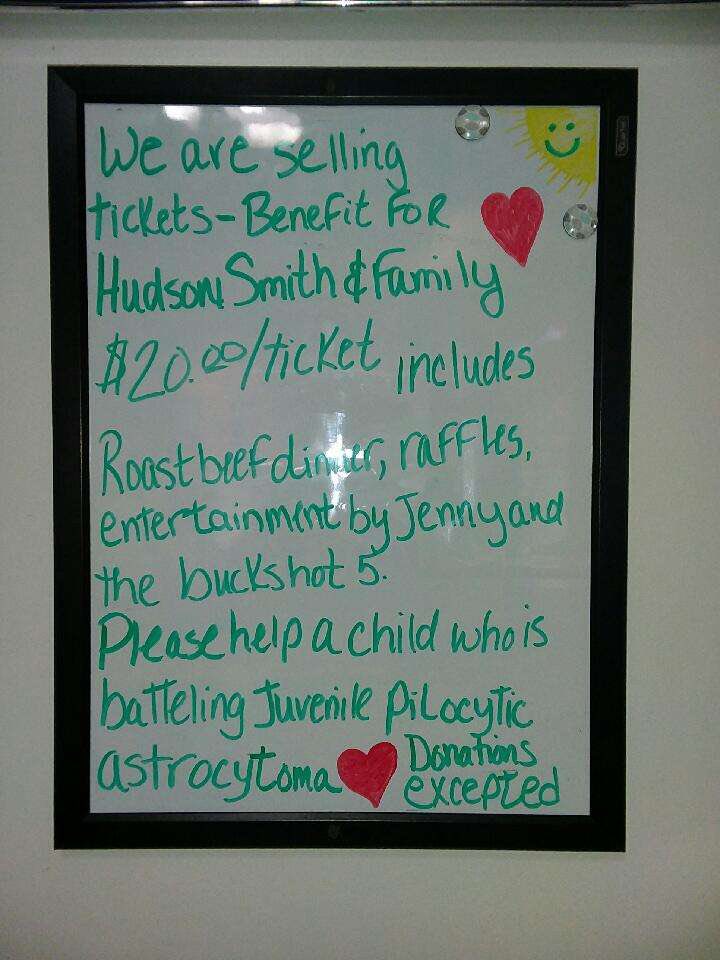 We are selling
tickets - Benefit FOR
Hudson Smith & Family
$20.00/ticket includes
Roast beef dinner, raffles,
entertainment by Jenny and
the buckshot 5.
Please help a child who is
batteling Juvenile Pilocytic
astrocytoma
Donations
excepted